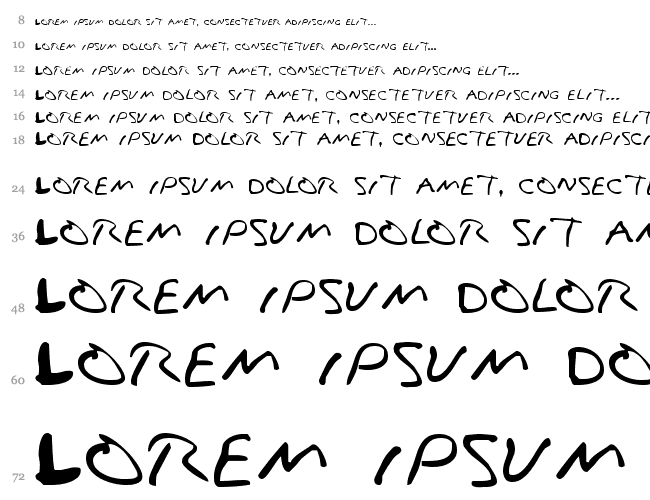 8 LOREM IPSUM DOLOR SIT AMET, CONSECTETUER ADIPISCING ELIT...
10 LOREM IPSUM DOLOR SIT AMET, CONSECTETUER ADIPISCING ELIT...
12 LOREM IPSUM DOLOR SIT AMET, CONSECTETUER ADIPISCING ELIT...
14 LOREM IPSUM DOLOR SIT AMET, CONSECTETUER ADIPISCING ELIT...
16 LOREM IPSUM DOLOR SIT AMET, CONSECTETUER ADIPISCING ELIT
18 LOREM IPSUM DOLOR SIT AMET, CONSECTETUER ADIPISCI
24 LOREM IPSUM DOLOR SIT AMET, CONSECTE
36 LOREM IPSUM DOLOR SIT AM
48 LOREM IPSUM DOLOR
60 LOREM IPSUM DO
72 LOREM IPSUM